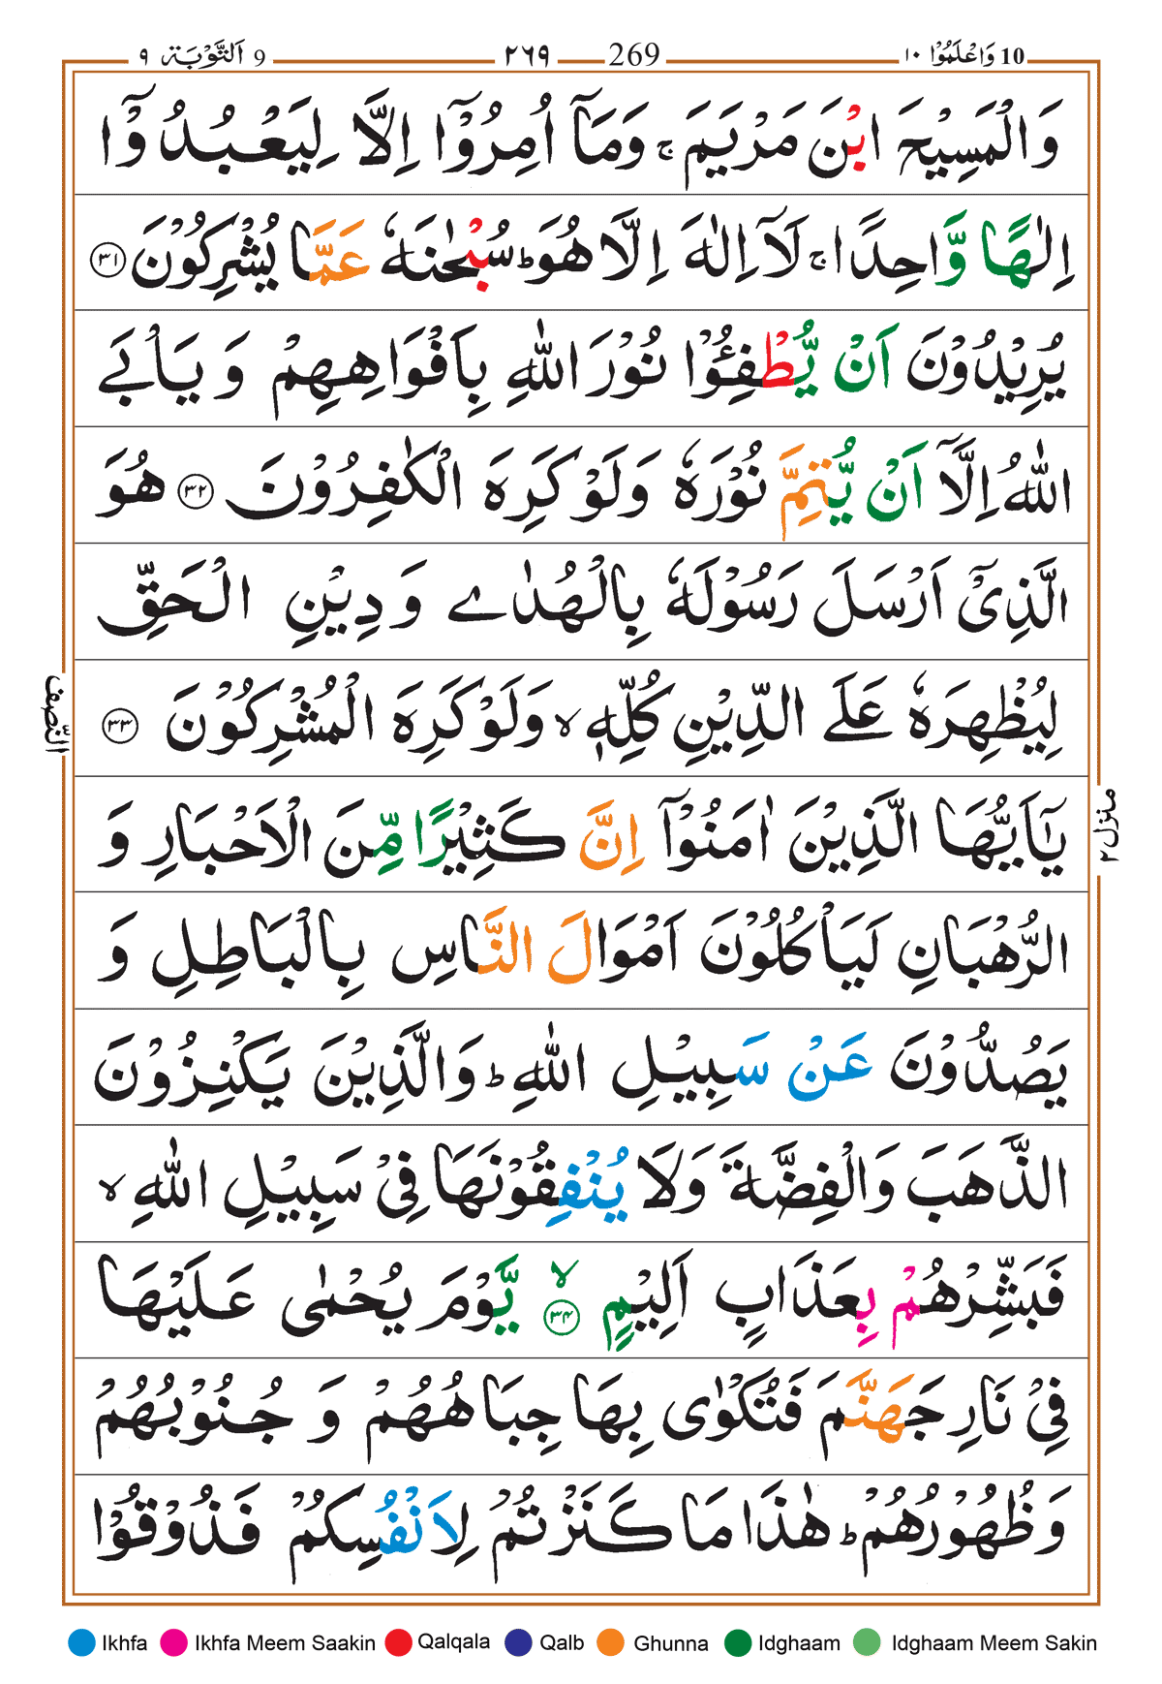 10 وَاعْلَمُوْا ١٠ 269 ٢٦٩ 9 اَلتَّوْبَة ٩
وَالْمَسِيْحَ ابْنَ مَرْيَمَ ۚ وَمَآ اُمِرُوْٓا اِلَّا لِيَعْبُدُوْٓا
اِلٰهًا وَّاحِدًا ۚ لَآ اِلٰهَ اِلَّا هُوَ ؕ سُبْحٰنَهٗ عَمَّا يُشْرِكُوْنَ ﴿۳۱﴾
يُرِيْدُوْنَ اَنْ يُّطْفِـُٔوْا نُوْرَ اللّٰهِ بِاَفْوَاهِهِمْ وَيَاْبَے
اللّٰهُ اِلَّآ اَنْ يُّتِمَّ نُوْرَهٗ وَلَوْ كَرِهَ الْكٰفِرُوْنَ ﴿۳۲﴾ هُوَ
الَّذِيْٓ اَرْسَلَ رَسُوْلَهٗ بِالْهُدٰے وَدِيْنِ الْحَقِّ
لِيُظْهِرَهٗ عَلَے الدِّيْنِ كُلِّهٖ ۙ وَلَوْ كَرِهَ الْمُشْرِكُوْنَ ﴿۳۳﴾
النّصف
يٰٓاَيُّهَا الَّذِيْنَ اٰمَنُوْٓا اِنَّ كَثِيْرًا مِّنَ الْاَحْبَارِ وَ
منزل ۲
الرُّهْبَانِ لَيَاْكُلُوْنَ اَمْوَالَ النَّاسِ بِالْبَاطِلِ وَ
يَصُدُّوْنَ عَنْ سَبِيْلِ اللّٰهِ ؕ وَالَّذِيْنَ يَكْنِزُوْنَ
الذَّهَبَ وَالْفِضَّةَ وَلَا يُنْفِقُوْنَهَا فِيْ سَبِيْلِ اللّٰهِ ۙ
فَبَشِّرْهُمْ بِعَذَابٍ اَلِيْمٍ ۙ ﴿۳۴﴾ يَّوْمَ يُحْمٰى عَلَيْهَا
فِيْ نَارِ جَهَنَّمَ فَتُكْوٰى بِهَا جِبَاهُهُمْ وَجُنُوْبُهُمْ
وَظُهُوْرُهُمْ ؕ هٰذَا مَا كَنَزْتُمْ لِاَنْفُسِكُمْ فَذُوْقُوْا
Ikhfa Ikhfa Meem Saakin Qalqala Qalb Ghunna Idghaam Idghaam Meem Sakin